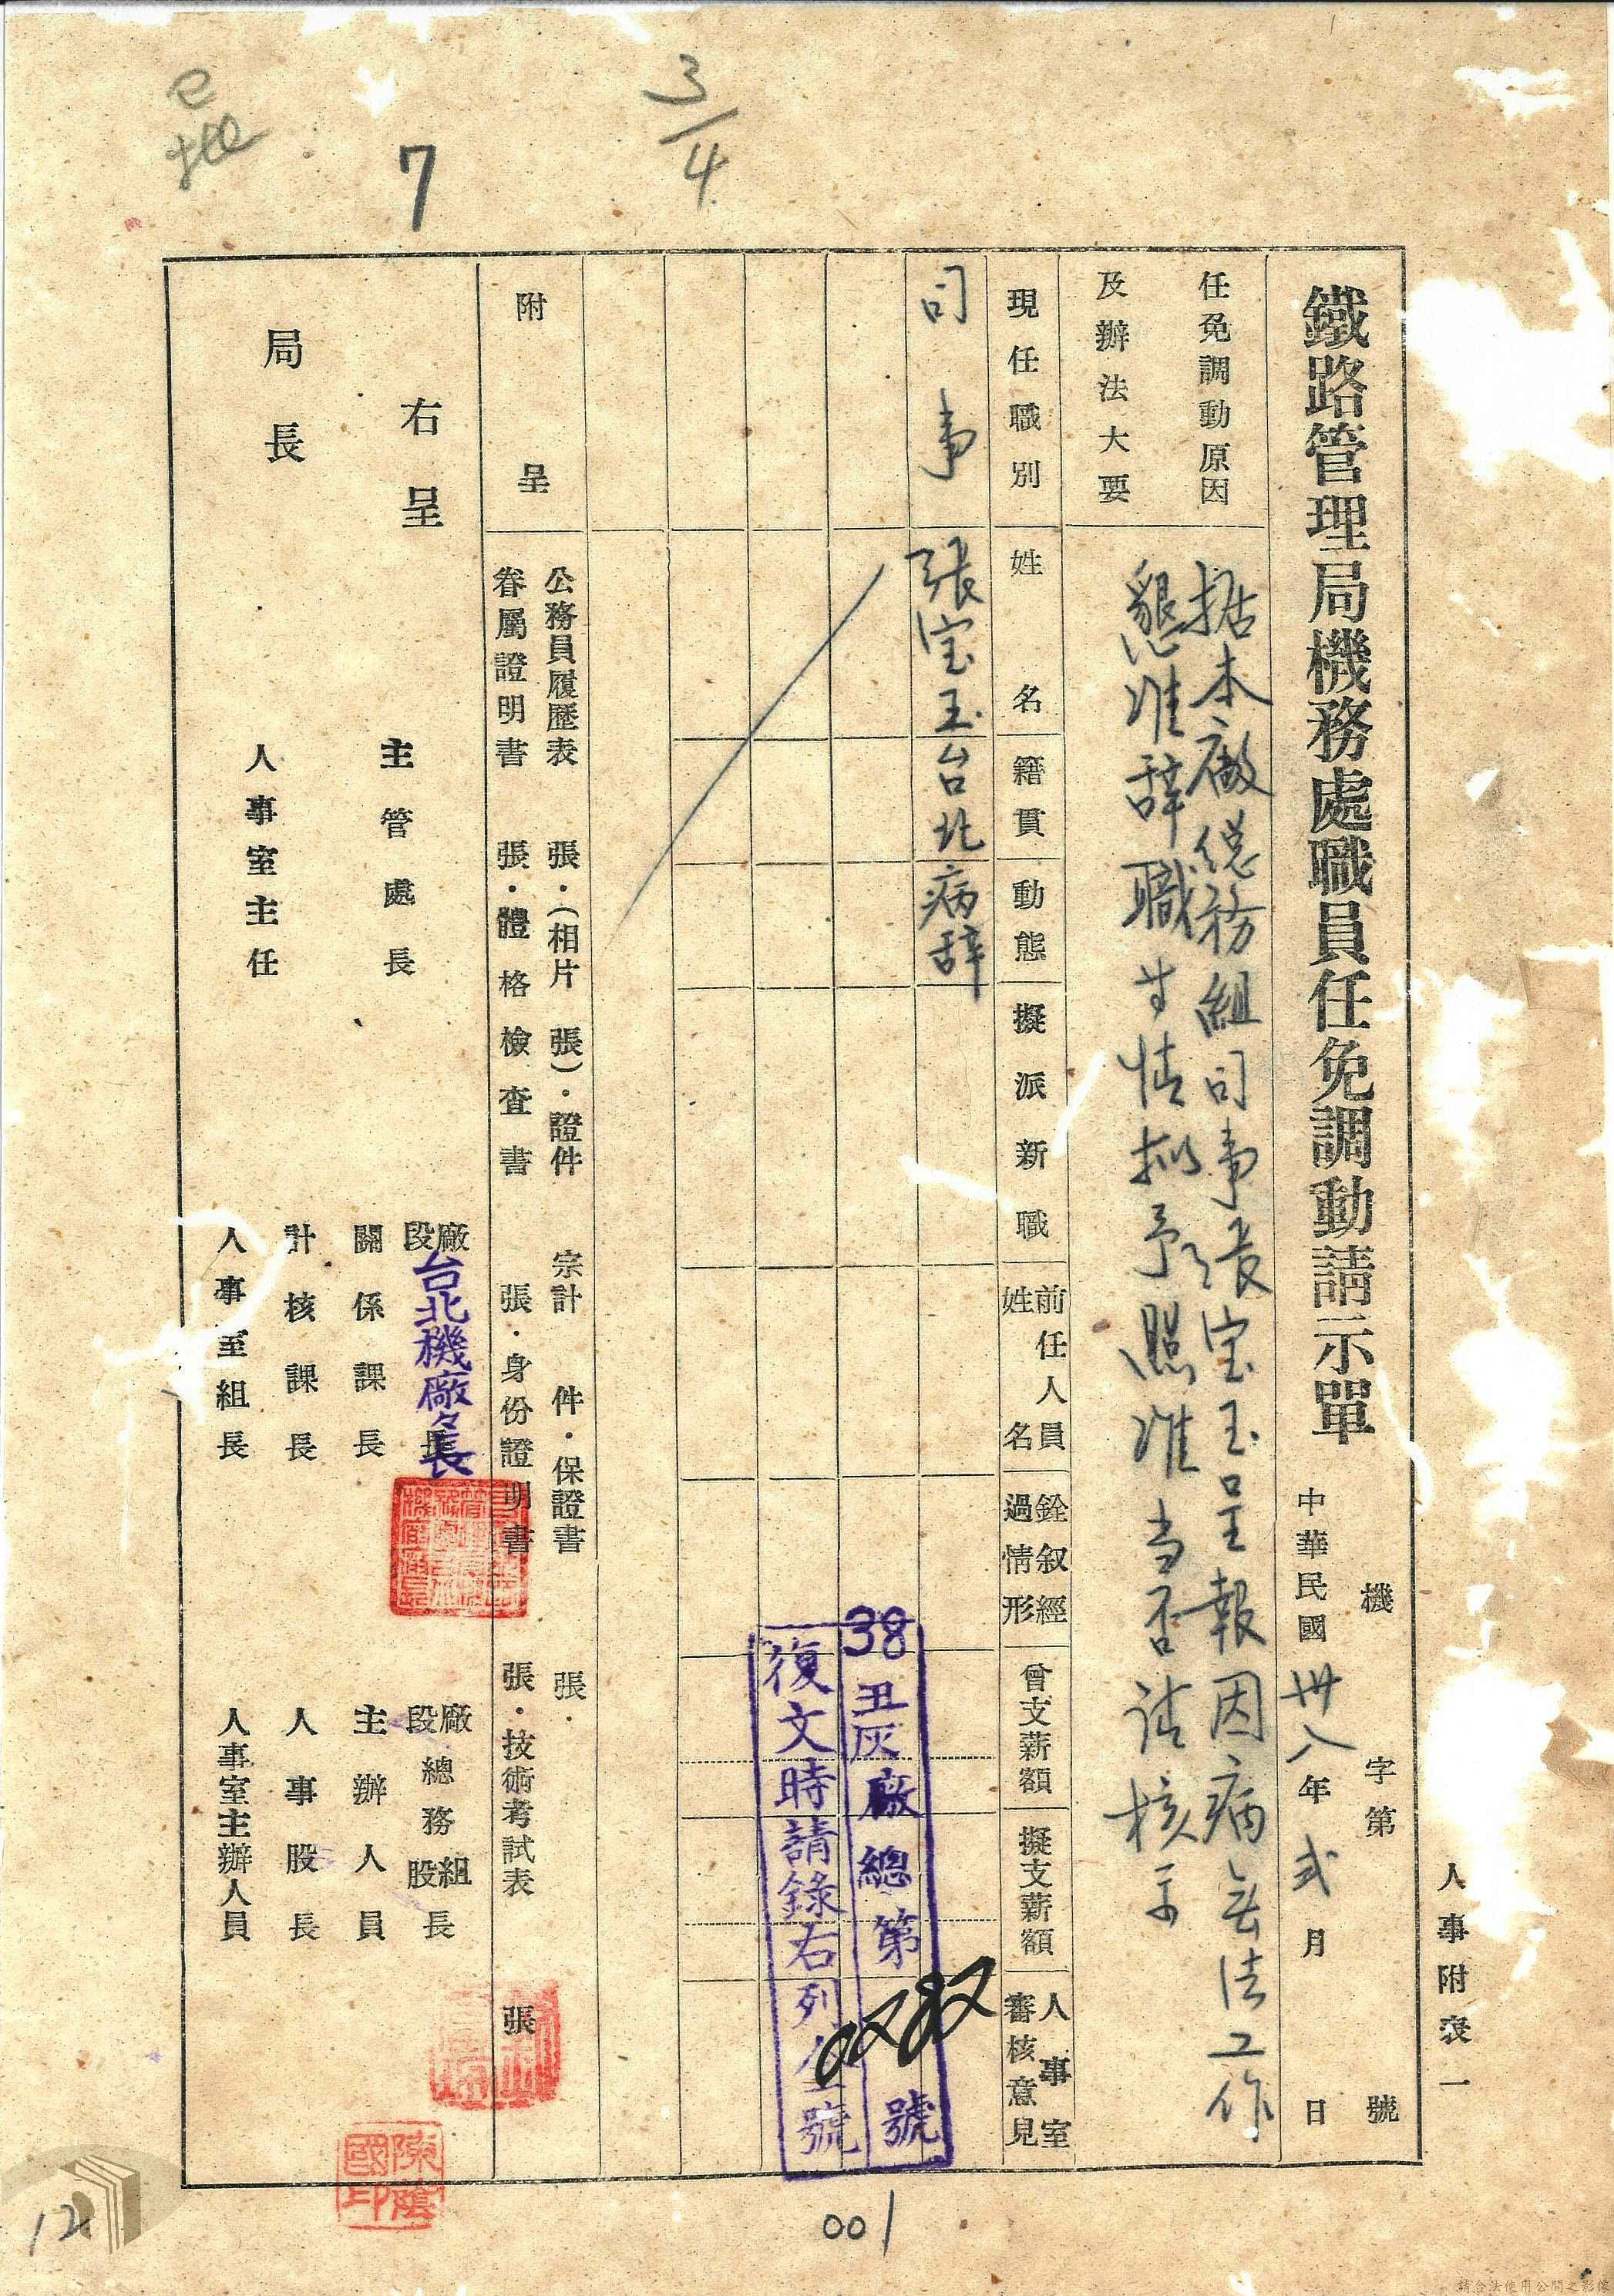 3/4
7
人事附表一
機 字第 號
鐵路管理局機務處職員任免調動請示單
中華民國卅八年弍月 日
任免調動原因
及辦法大要
据本廠総務組司事張宝玉呈報因病無法工作
懇准辞職等情拟予照准当否請核示
現任職別
姓名
籍貫
動態
擬派新職
前任人員
姓名
銓叙經
過情形
曾支薪額
擬支薪額
人事室
審核意見
司事
張宝玉
台北
病辞
38丑灰廠總第 號
復文時請錄右列 號
附呈
公務員履歷表 張・(相片 張)・證件 宗計 件・保證書 張・
眷屬證明書 張・體格檢查書 張・身份證明書 張・技術考試表 張
右呈
局長
主管處長
人事室主任
廠
段
長
台北機廠々長
關係課長
計核課長
人事室組長
廠 組
段總務股長
主辦人員
人事股長
人事室主辦人員
陳蔭
國印
001
12
請合法使用公開之影像